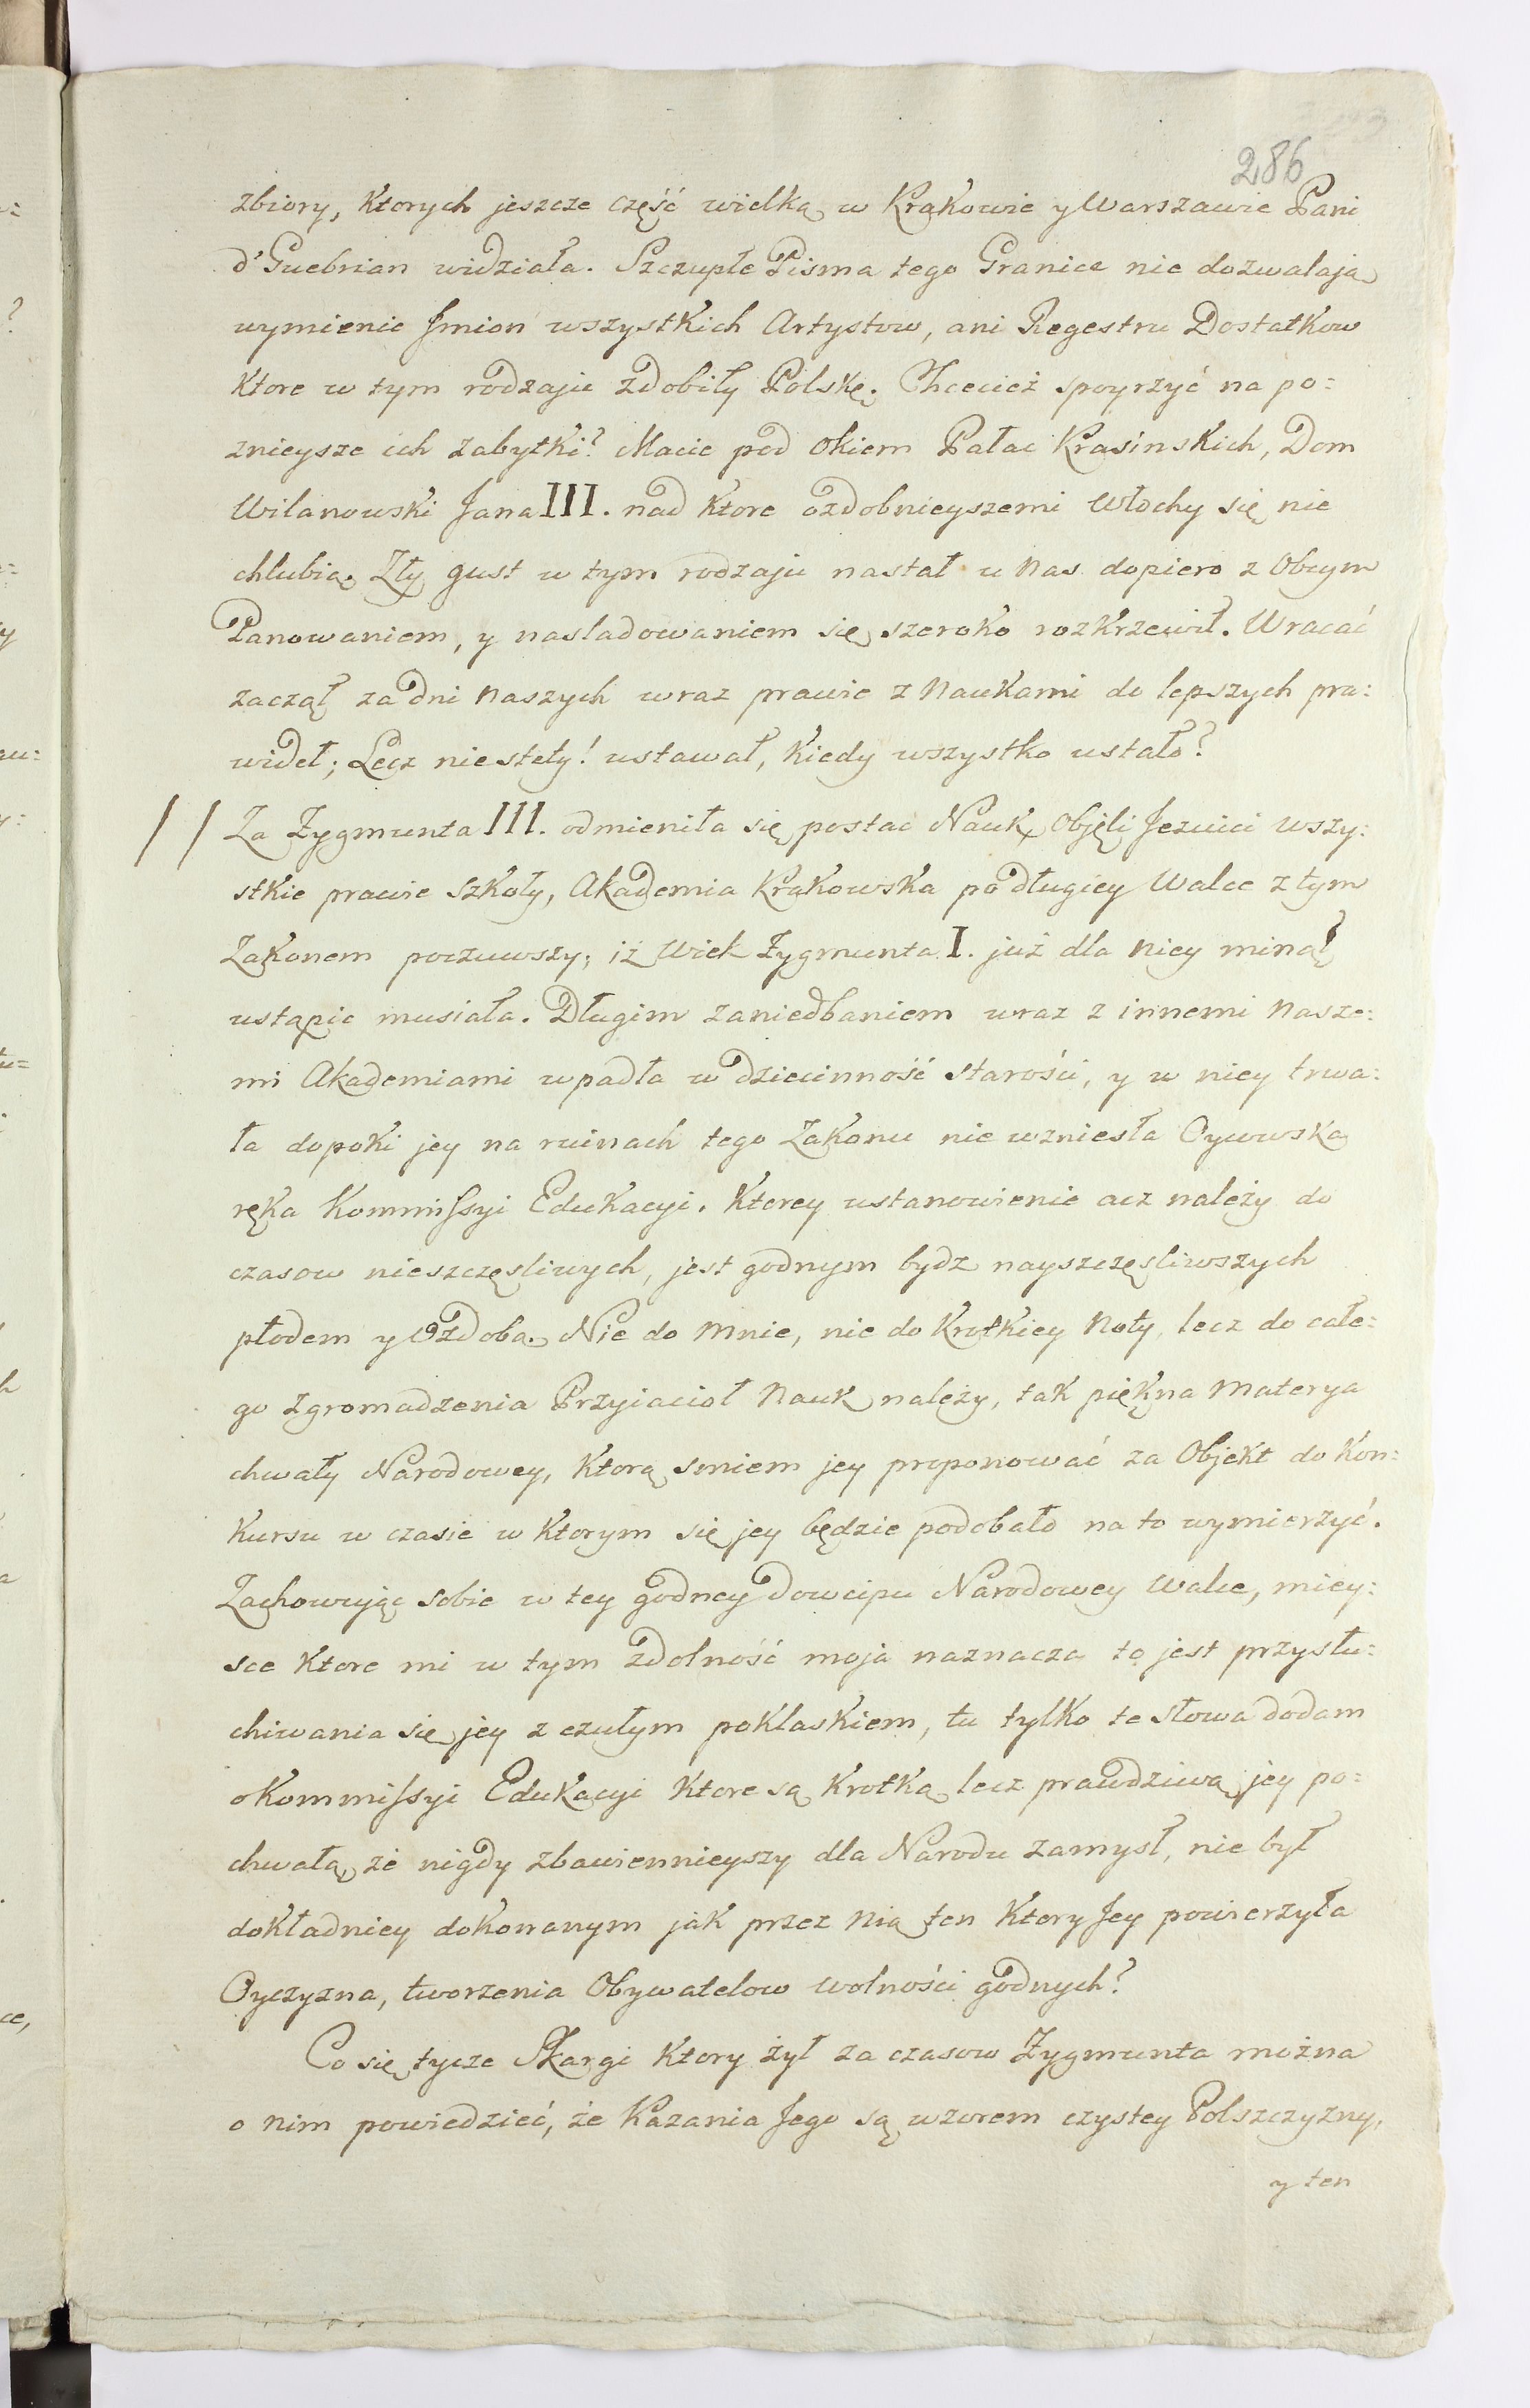 286
zbiory, ktorych jeszcze część wielką w Krakowie y Warszawie Pani
d'Guebrian widziała. Szczupłe Pisma tego Granice nie dozwalają
wymienic Imion wszystkich Artystow, ani Regestru Dostatkow
ktore w tym rodzaju zdobiły Polskę. Chcecież spoyrzyć na po=
znieysze ich zabytki? Macie pod okiem Pałac Krasińskich, Dom
Wilanowski Jana III. nad ktore ozdobnieyszemi Włochy się nie
chlubią. Zły gust w tym rodzaju nastał u nas dopiero z Obcym
Panowaniem, y nasladowaniem się szeroko rozkrzewił. Wracać
zaczął za dni naszych wraz prawie z Naukami do lepszych pra=
wideł; Lecz niestety! ustawał, kiedy wszystko ustało?
// Za Zygmunta III. odmieniła się postac Nauk, Objęli Jezuici wszy=
stkie prawie szkoły, Akademia Krakowska po długiey Walce z tym
Zakonem poczuwszy; iż Wiek Zygmunta I. już dla niey minął
ustąpic musiała. Długim zaniedbaniem wraz z innemi Nasze=
mi Akademiami wpadła w dziecinność starości, y w niey trwa=
ła dopoki jey na ruinach tego Zakonu nie wzniesła Oycowska
ręka Kommissyi Edukacyi. Ktorey ustanowienie acz należy do
czasow nieszczęsliwych, jest godnym bydz nayszczęsliwszych
płodem y Ozdobą. Nie do mnie, nie do krotkiey Noty, lecz do całe=
go zgromadzenia Przyiacioł Nauk należy, tak piękna Materya
chwały Narodowey, ktorą smiem jey proponować za Objekt do Kon=
kursu w czasie w ktorym się jey będzie podobało na to wymierzyć.
Zachowując sobie w tey godney Dowcipu Narodowey Walce, miey=
sce ktore mi w tym zdolność moja naznacza to jest przysłu=
chiwania się jey z czułym poklaskiem, tu tylko te słowa dodam
o Kommissyi Edukacyi ktore są krotką lecz prawdziwą jey po=
chwałą, że nigdy zbawiennieyszy dla Narodu zamysł, nie był
dokładniey dokonanym jak przez nią ten ktory Jey powierzyła
Oyczyzna, tworzenia Obywatelow wolności godnych?
Co się tycze Skargi ktory żył za czasow Zygmunta można
o nim powiedzieć, że Kazania Jego są wzorem czystey Polszczyzny,
y ten